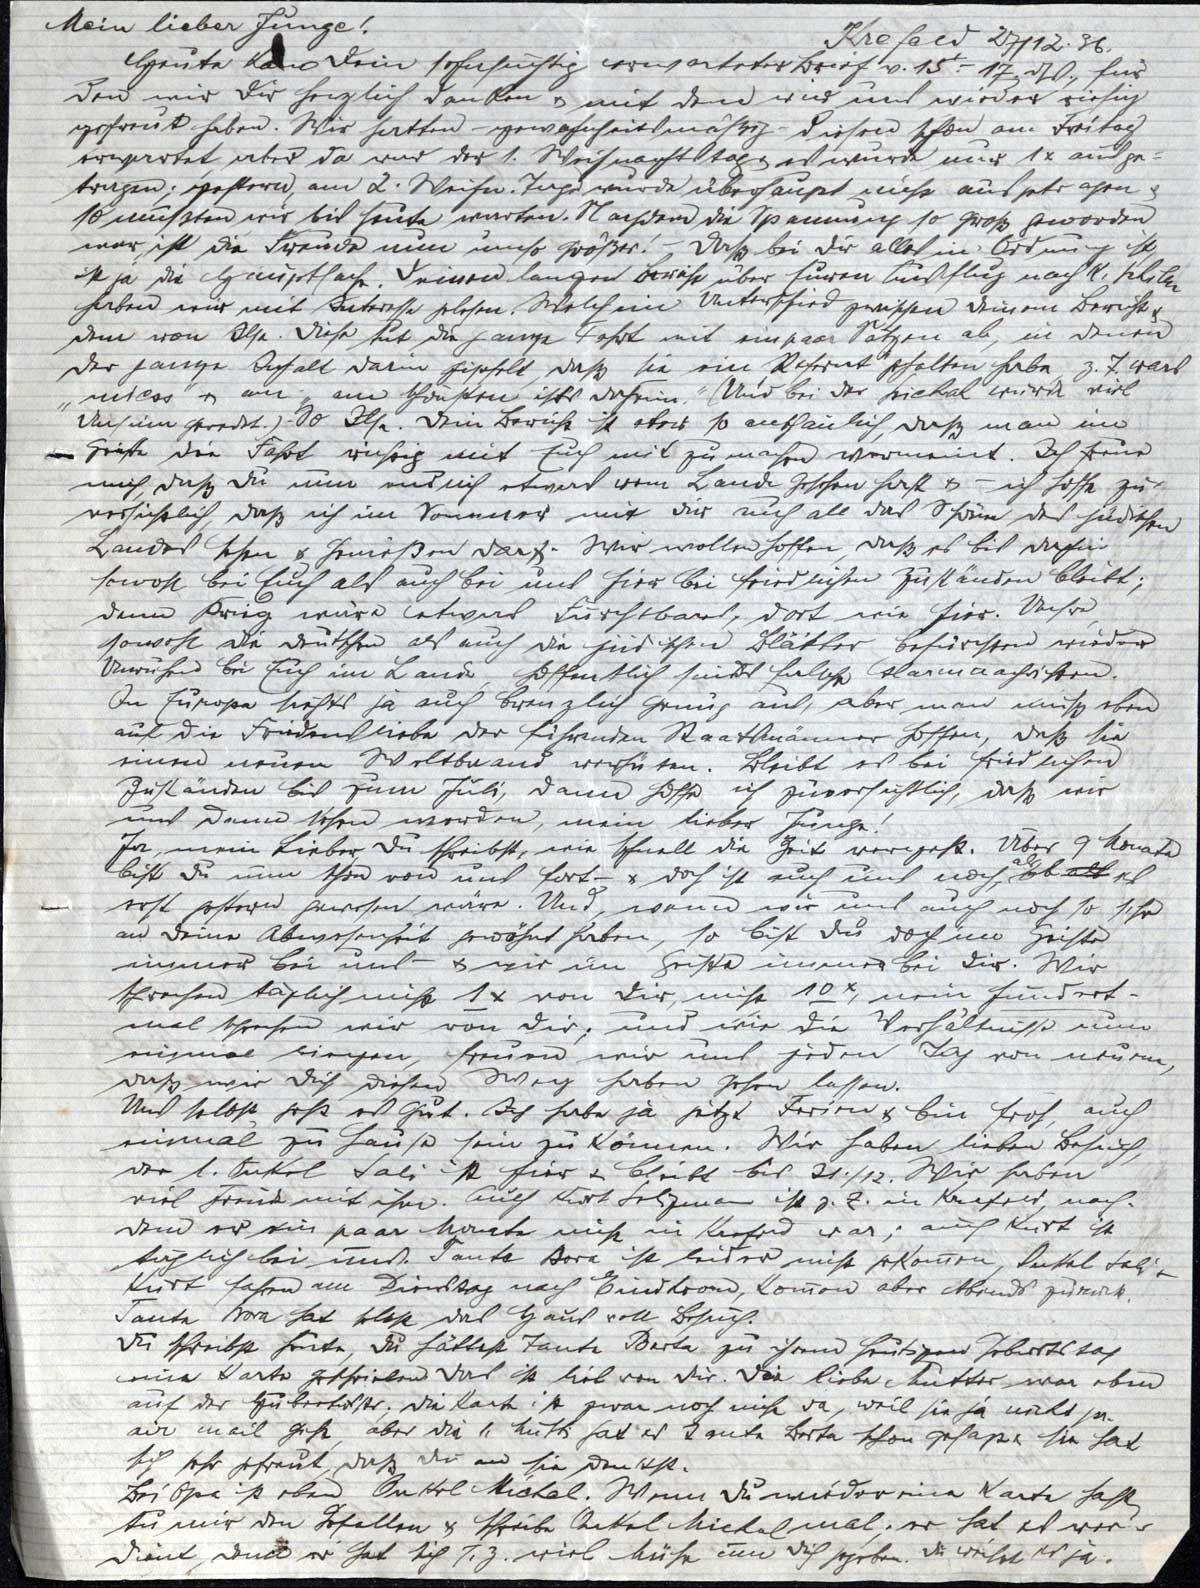 Mein lieber Junge!
Krefeld 27/12.36.
Heute kam Dein sehnsüchtig erwarteter Brief v. 15.–17. ds., für
den wir Dir herzlich danken & mit dem wir uns wieder riesig
gefreut haben. Wir hatten – gewohnheitsmäßig – diesen schon am Freitag
erwartet, aber da war der 1. Weihnachtstag & es wurde nur 1x ausge=
tragen; gestern am 2. Weihn. Tage wurde überhaupt nicht ausgetragen &
so mußten wir bis heute warten. Nachdem die Spannung so groß geworden
war, ist die Freude nun umso größer! – Daß bei Dir alles in Ordnung ist,
ist ja die Hauptsache. Deinen langen Bericht über Euren Ausflug nach
haben wir mit Interesse gelesen. Welch ein Unterschied zwischen Deinem Bericht &
dem von Ilse. Diese tut die ganze Fahrt mit ein paar Sätzen ab, in denen
der ganze Inhalt darin gipfelt, daß sie ein Referat gehalten habe z. T. wars
"mies" & am "am schönsten ists daheim." (Und bei der wurde viel
Unsinn geredet.) So Ilse. Dein Bericht ist aber so anschaulich, daß man im
Geiste die Fahrt richtig mit Euch mit zu machen vermeint. Ich freue
mich, daß Du nun endlich etwas vom Lande gesehen hast & – ich hoffe zu=
versichtlich, daß ich im Sommer mit Dir auch all das Schöne des jüdischen
Landes sehen & genießen darf. Wir wollen hoffen, daß es bis dahin
sowohl bei Euch als auch bei uns hier bei friedlichen Zuständen bleibt;
denn Krieg wäre etwas Furchtbares, dort wie hier. Unsre,
sowohl die deutschen als auch die jüdischen Blätter befürchten wieder
Unruhen bei Euch im Lande, hoffentlich sinds falsche Alarmnachrichten.
In Europa siehts ja auch brenzlich genug aus, aber man muß eben
auf die Friedensliebe der führenden Staatsmänner hoffen, daß sie
einen neuen Weltbrand verhüten. Bleibt es bei friedlichen
Zuständen bis zum Juli, dann hoffe ich zuversichtlich, daß wir
uns dann sehen werden, mein lieber Junge!
Ja, mein Lieber, Du schreibst, wie schnell die Zeit vergeht. Über 9 Monate
bist Du nun schon von uns fort – & doch ist auch uns noch, als ob es
erst gestern gewesen wäre. Und, wenn wir uns auch noch so sehr
an Deine Abwesenheit gewöhnt haben, so bist Du doch im Geiste
immer bei uns – & wir im Geiste immer bei Dir. Wir
sprechen täglich nicht 1x von Dir, nicht 10x, nein hundert–
mal sprechen wir von Dir; und wie die Verhältnisse nun
einmal liegen, freuen wir uns jeden Tag von neuem,
daß wir Dich diesen Weg haben gehen lassen.
Uns selbst geht es gut. Ich habe ja jetzt Ferien & bin froh, auch
einmal zu Hause sein zu können. Wir haben lieben Besuch,
der l. Onkel Sali ist hier & bleibt bis 31./12. Wir haben
viel Freude mit ihm. Auch Kurt ist z. Z. in Krefeld, nach–
dem er ein paar Monate nicht in Krefeld war; auch Kurt ist
täglich bei uns. Tante Nora ist leider nicht gekommen, Onkel Sali &
Kurt fahren am Dienstag nach Eindhoven, kommen aber abends zurück.
Tante Nora hat selbst das Haus voll Besuch.
Du schreibst heute, Du hättest Tante Berta zu ihrem heutigen Geburtstag
eine Karte geschrieben. Das ist lieb von Dir. Die liebe Mutter war eben
auf der Hubertusstr. Die Karte ist zwar noch nicht da, weil sie ja nicht per
air mail geht, aber die l. Mutti hat es Tante Berta schon gesagt & sie hat
sich sehr gefreut, daß Du an sie denkst.
Bei Opa ist eben Onkel Michel. Wenn Du wieder eine Karte hast,
tu mir den Gefallen & schreibe Onkel Michel mal; er hat es ver–
dient, denn er hat sich s. Z. viel Mühe um Dich gegeben. Du weißt es ja.